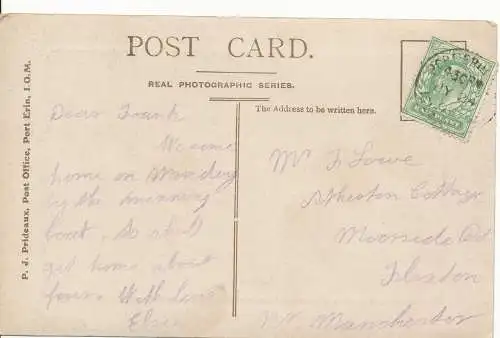 POST CARD.
REAL PHOTOGRAPHIC SERIES.
The Address to be written here.
P. J. Prideaux, Post Office, Port Erin, I.O.M.
Dear Frank
We come
home on Monday
by the morning
boat, so shall
get home about
four. With love
Elsie
Mr F Lowe
Atherton Cottage
Moorside Rd
Flixton
Nr. Manchester
PORT ERIN